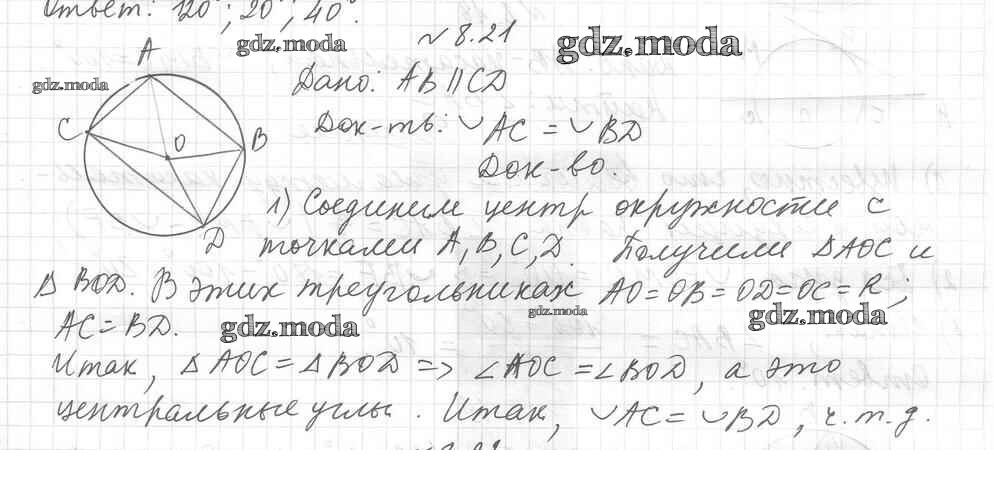 Ответ: 120°; 20°; 40°.
№ 8.21
gdz.moda
gdz.moda
gdz.moda
A
C
O
B
D
Дано: AB || CD
Док-ть: ◡AC = ◡BD
Док-во.
1) Соединим центр окружности с
точками A, B, C, D. Получили ΔAOC и
Δ BOD. В этих треугольниках AO = OB = OD = OC = R;
AC = BD.
gdz.moda
gdz.moda
gdz.moda
Итак, ΔAOC = ΔBOD => ∠AOC = ∠BOD, а это
центральные углы. Итак, ◡AC = ◡BD, ч.т.д.